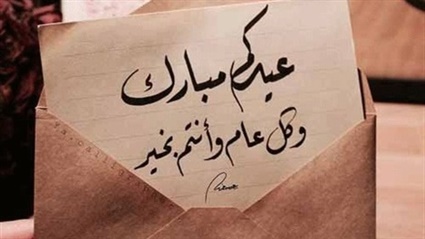 عيدكم مبارك
وكل عام وأنتم بخير